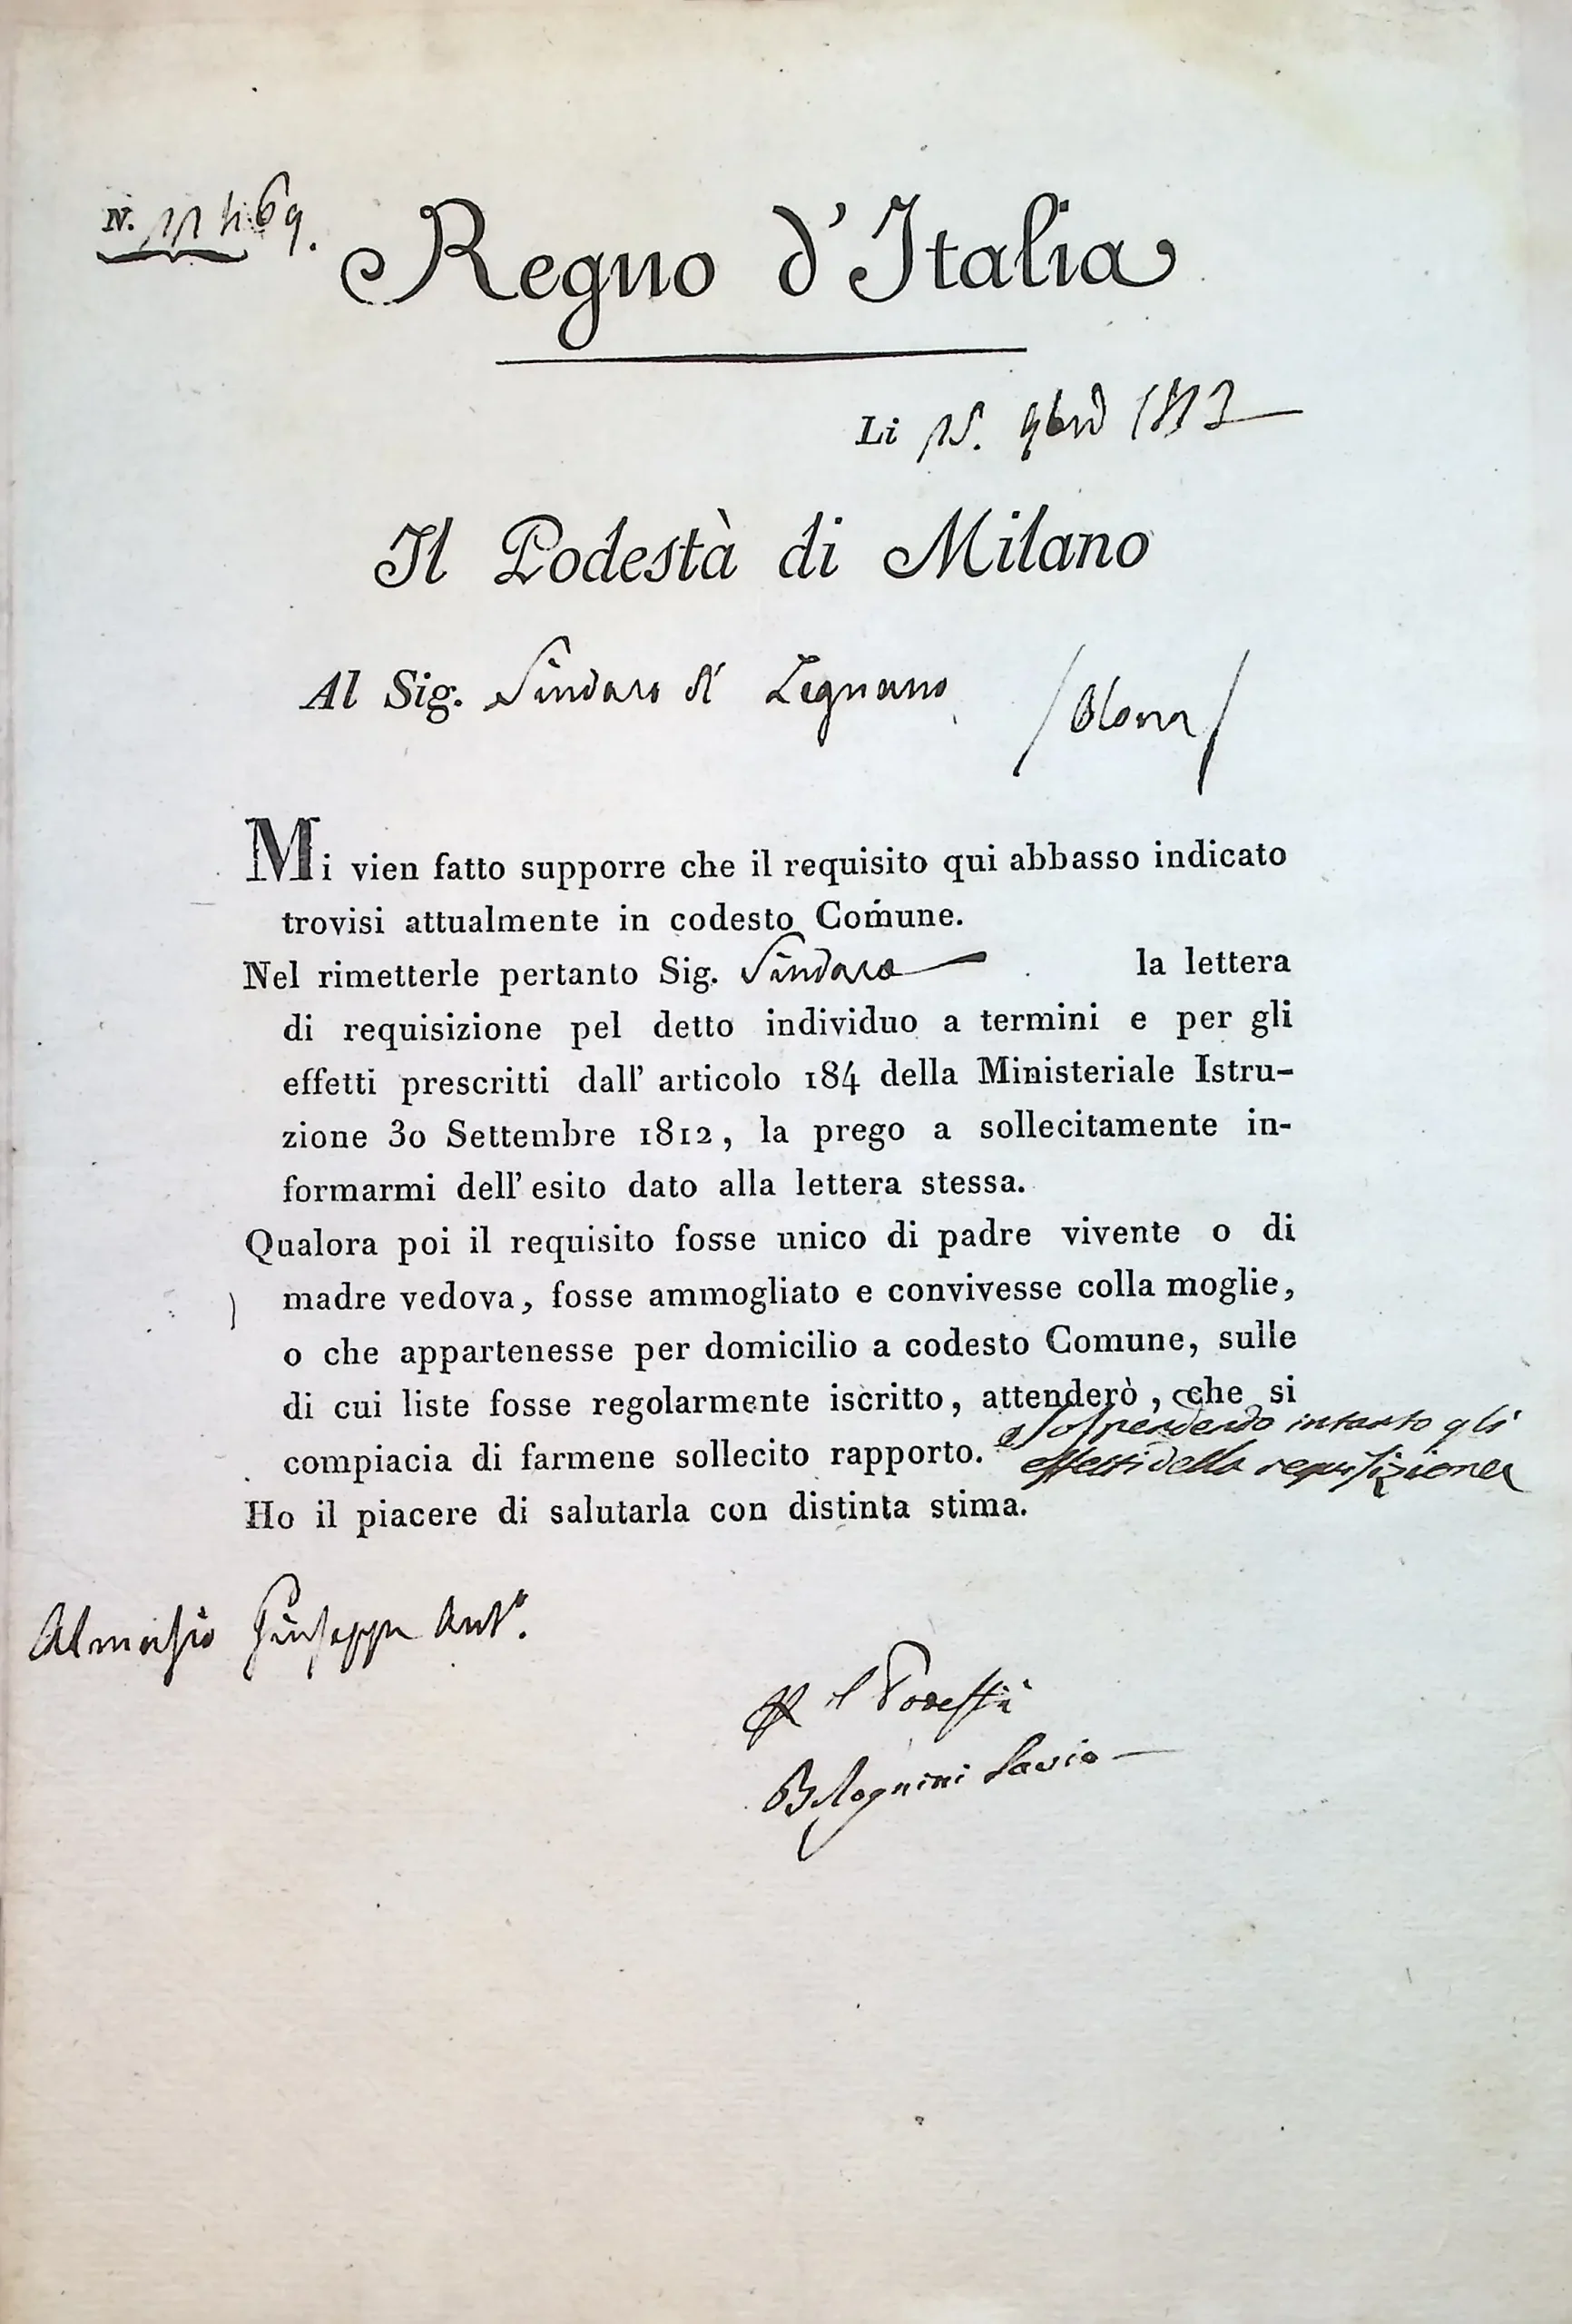 N. 11469.
Regno d'Italia
Li 15. 9bre 1812
Il Podestà di Milano
Al Sig. Sindaco di Legnano
/Olona/
Mi vien fatto supporre che il requisito qui abbasso indicato
trovisi attualmente in codesto Comune.
Nel rimetterle pertanto Sig. Sindaco la lettera
di requisizione pel detto individuo a termini e per gli
effetti prescritti dall' articolo 184 della Ministeriale Istru-
zione 30 Settembre 1812, la prego a sollecitamente in-
formarmi dell' esito dato alla lettera stessa.
Qualora poi il requisito fosse unico di padre vivente o di
madre vedova, fosse ammogliato e convivesse colla moglie,
o che appartenesse per domicilio a codesto Comune, sulle
di cui liste fosse regolarmente iscritto, attenderò, che si
compiacia di farmene sollecito rapporto. e sospendendo intanto gli
effetti della requisizione
Ho il piacere di salutarla con distinta stima.
Almasio Giuseppe Ant.º
il Podestà
Bolognini Savio